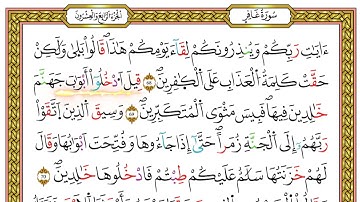 سُورَةُ غَافِرٍ
الجُزْءُ الرَّابِعُ وَالعِشْرُونَ
ءَايَٰتِ رَبِّكُمْ وَيُنذِرُونَكُمْ لِقَآءَ يَوْمِكُمْ هَٰذَاۚ قَالُوا۟ بَلَىٰ وَلَٰكِنْ
حَقَّتْ كَلِمَةُ ٱلْعَذَابِ عَلَى ٱلْكَٰفِرِينَ قِيلَ ٱدْخُلُوٓا۟ أَبْوَٰبَ جَهَنَّمَ
خَٰلِدِينَ فِيهَاۖ فَبِئْسَ مَثْوَى ٱلْمُتَكَبِّرِينَ وَسِيقَ ٱلَّذِينَ ٱتَّقَوْا۟
رَبَّهُمْ إِلَى ٱلْجَنَّةِ زُمَرًاۖ حَتَّىٰٓ إِذَا جَآءُوهَا وَفُتِحَتْ أَبْوَٰبُهَا وَقَالَ
لَهُمْ خَزَنَتُهَا سَلَٰمٌ عَلَيْكُمْ طِبْتُمْ فَٱدْخُلُوهَا خَٰلِدِينَ